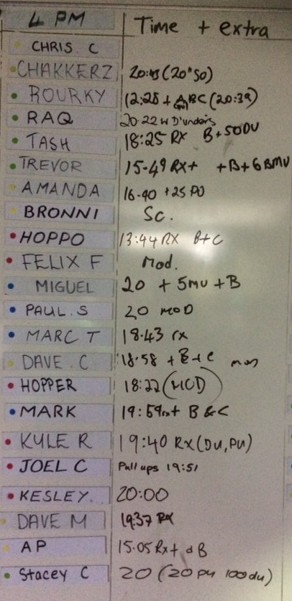 4 PM Time + extra
CHRIS. C
CHAKKERZ 20:45 (20*50)
ROURKY 12:28 + ABC (20:39)
RAQ 20-22
TASH 18:25 RX B+50DU
TREVOR 15-49 RX+ +B+6BMU
AMANDA 16.40 +25 PU
BRONNI Sc.
HOPPO 13:44 RX B+C
FELIX F Mod.
MIGUEL 20 + 5MU + B
PAUL.S 20 MOD
MARC T 18.43 rx
DAVE.C 18:58 + B+C
HOPPER 18:22 (MOD)
MARK 19:59 rx+ B & C
KYLE R 19:40 RX (DU, PU)
JOEL C Pull ups 19:51
KESLEY. 20:00
DAVE M 19:37 RX
AP 15:05 Rx + B
Stacey C 20 (20 PU 100 du)